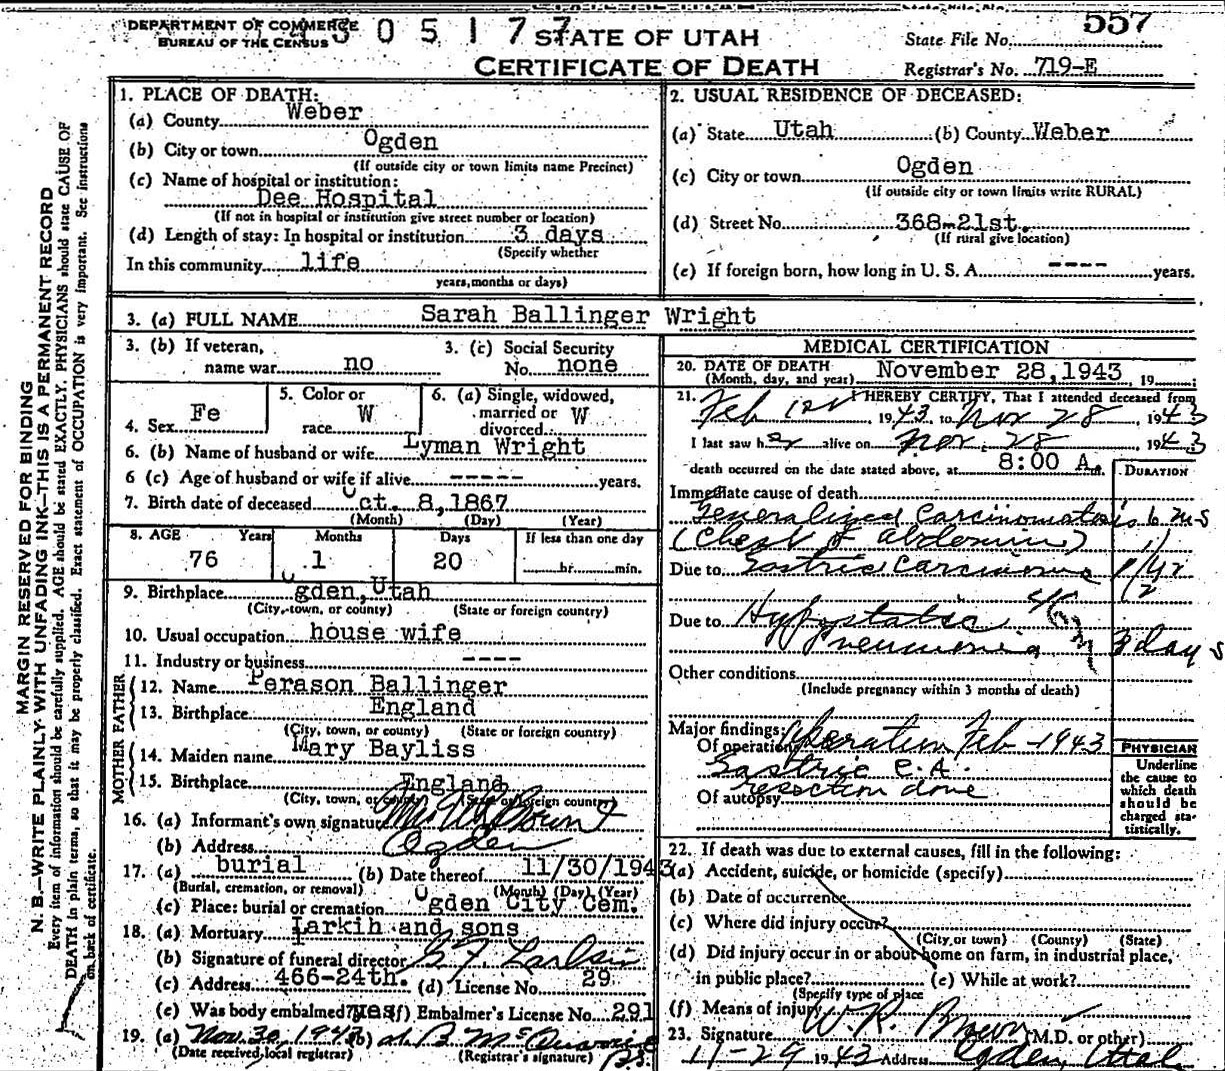 DEPARTMENT OF COMMERCE
BUREAU OF THE CENSUS
4305177
STATE OF UTAH
CERTIFICATE OF DEATH
State File No. 557
Registrar's No. 719-E
MARGIN RESERVED FOR BINDING
N. B.—WRITE PLAINLY WITH UNFADING INK—THIS IS A PERMANENT RECORD
Every item of information should be carefully supplied. AGE should be stated EXACTLY. PHYSICIANS should state CAUSE OF
DEATH in plain terms, so that it may be properly classified. Exact statement of OCCUPATION is very important. See instructions
on back of certificate.
1. PLACE OF DEATH:
(a) County Weber
(b) City or town Ogden
(If outside city or town limits name Precinct)
(c) Name of hospital or institution:
Dee Hospital
(If not in hospital or institution give street number or location)
(d) Length of stay: In hospital or institution 3 days
(Specify whether
In this community life
years, months or days)
2. USUAL RESIDENCE OF DECEASED:
(a) State Utah (b) County Weber
(c) City or town Ogden
(If outside city or town limits write RURAL)
(d) Street No. 368-21st.
(If rural give location)
(e) If foreign born, how long in U. S. A. ---- years.
3. (a) FULL NAME Sarah Ballinger Wright
3. (b) If veteran,
name war no
3. (c) Social Security
No. none
4. Sex Fe
5. Color or
race W
6. (a) Single, widowed,
married or W
divorced
6. (b) Name of husband or wife Lyman Wright
6 (c) Age of husband or wife if alive ----- years.
7. Birth date of deceased Oct. 8,1867
(Month) (Day) (Year)
8. AGE Years Months Days If less than one day
76 1 20 hr. min.
9. Birthplace Ogden,Utah
(City, town, or county) (State or foreign country)
10. Usual occupation house wife
11. Industry or business ----
FATHER
12. Name Perason Ballinger
13. Birthplace England
(City, town, or county) (State or foreign country)
MOTHER
14. Maiden name Mary Bayliss
15. Birthplace England
(City, town, or county) (State or foreign country)
16. (a) Informant's own signature Mrs
(b) Address Ogden
17. (a) burial (b) Date thereof 11/30/1943
(Burial, cremation, or removal) (Month) (Day) (Year)
(c) Place: burial or cremation Ogden City Cem.
18. (a) Mortuary Larkin and sons
(b) Signature of funeral director G J Larkin
(c) Address 466-24th. (d) License No. 29
(e) Was body embalmed? yes (f) Embalmer's License No. 291
19. (a) Nov. 30, 1943 (b)
(Date received local registrar) (Registrar's signature)
MEDICAL CERTIFICATION
20. DATE OF DEATH
(Month, day, and year) November 28,1943, 19
21. I HEREBY CERTIFY, That I attended deceased from
Feb 1st, 1943 to Nov 28, 1943
I last saw her alive on Nov. 28 1943
death occurred on the date stated above, at 8:00 A.m.
DURATION
Immediate cause of death
Generalized Carcinomatosis 6 ms
(Chest & abdomin)
Due to Gastric Carcinoma 1 1/2 yr
Due to Hypostatic
Pneumonia 3 days
Other conditions
(Include pregnancy within 3 months of death)
Major findings:
Of operation Operation Feb - 1943
Gastric C.A.
resection done
Of autopsy
PHYSICIAN
Underline
the cause to
which death
should be
charged sta-
tistically.
22. If death was due to external causes, fill in the following:
(a) Accident, suicide, or homicide (specify)
(b) Date of occurrence
(c) Where did injury occur?
(City or town) (County) (State)
(d) Did injury occur in or about home on farm, in industrial place,
in public place? (e) While at work?
(Specify type of place
(f) Means of injury
23. Signature W. R. Brown (M.D. or other)
11-29 1943 Address Ogden, Utah